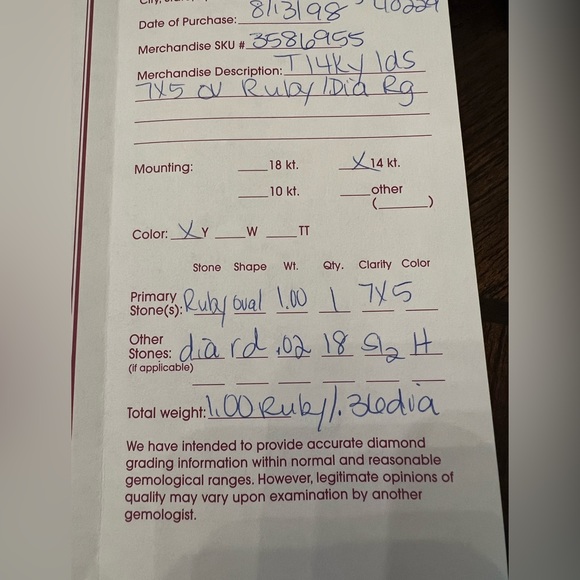 Date of Purchase: 8/13/98
Merchandise SKU # 3586955
Merchandise Description: T14Ky lds
7x5 ov Ruby/Dia Rg
Mounting: 18 kt. X 14 kt.
10 kt. other
( )
Color: X Y W TT
Stone Shape Wt. Qty. Clarity Color
Primary Stone(s): Ruby oval 1.00 1 7X5
Other Stones: dia rd .02 18 SI2 H
(if applicable)
Total weight: 1.00 Ruby/.36 dia
We have intended to provide accurate diamond
grading information within normal and reasonable
gemological ranges. However, legitimate opinions of
quality may vary upon examination by another
gemologist.